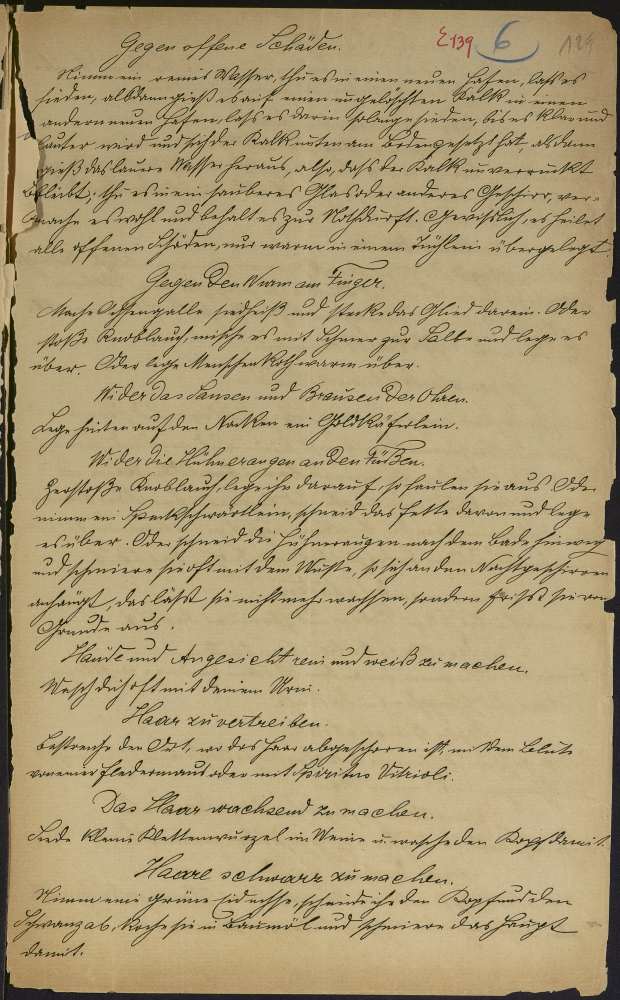 Gegen offene Schäden. E139 6 129
Nimm ein reines Wasser, thu es in einen neuen Hafen, laß es
sieden, alsdann gieß es auf einen ungelöschten Kalk in einen
andern neuen Hafen, laß es darin solange sieden, bis es klar und
lauter wird und sich der Kalk unten am Boden gesetzt hat, alsdann
gieß das lautere Wasser heraus, also, daß der Kalk unverruckt
bleibt; thu es in ein sauberes Glas oder anderes Geschirr, ver-
mache es wohl und behalt es zur Nothdurft. Gewißlich, es heilet
alle offenen Schäden, nur warm in einem Tüchlein übergelegt.
Gegen den Wurm am Finger.
Mache Ochsengalle siedheiß und stecke das Glied darein. Oder
stoße Knoblauch, mische es mit Schmer zur Salbe und lege es
über. Oder lege Menschenkoth warm über.
Wider das Sausen und Brausen der Ohren.
Lege hinten auf den Nacken ein Goldkäferlein.
Wider die Hühneraugen an den Füßen.
Zerstoße Knoblauch, lege ihn darauf, so faulen sie aus. Oder
nimm ein Speckschwärtlein, schneid das Fette davon und lege
es über. Oder schneid die Hühneraugen nach dem Bade hinweg
und schmiere sie oft mit dem Wuste, so sich an den Nachtgeschirren
anhängt, das läßt sie nicht mehr wachsen, sondern frißt sie von
Grunde aus.
Hände und Angesicht rein und weiß zu machen.
Wasch dich oft mit deinem Urin.
Haar zu vertreiben.
Bestreiche den Ort, wo das Haar abgeschoren ist, mit dem Blute
von einer Fledermaus oder mit Spiritus Vitrioli.
Das Haar wachsend zu machen.
Siede kleine Klettenwurzel in Weine u. wasche den Kopf damit.
Haare schwarz zu machen.
Nimm eine grüne Eidechse, schneide ihr den Kopf und den
Schwanz ab, koche sie in Baumöl und schmiere das Haupt
damit.